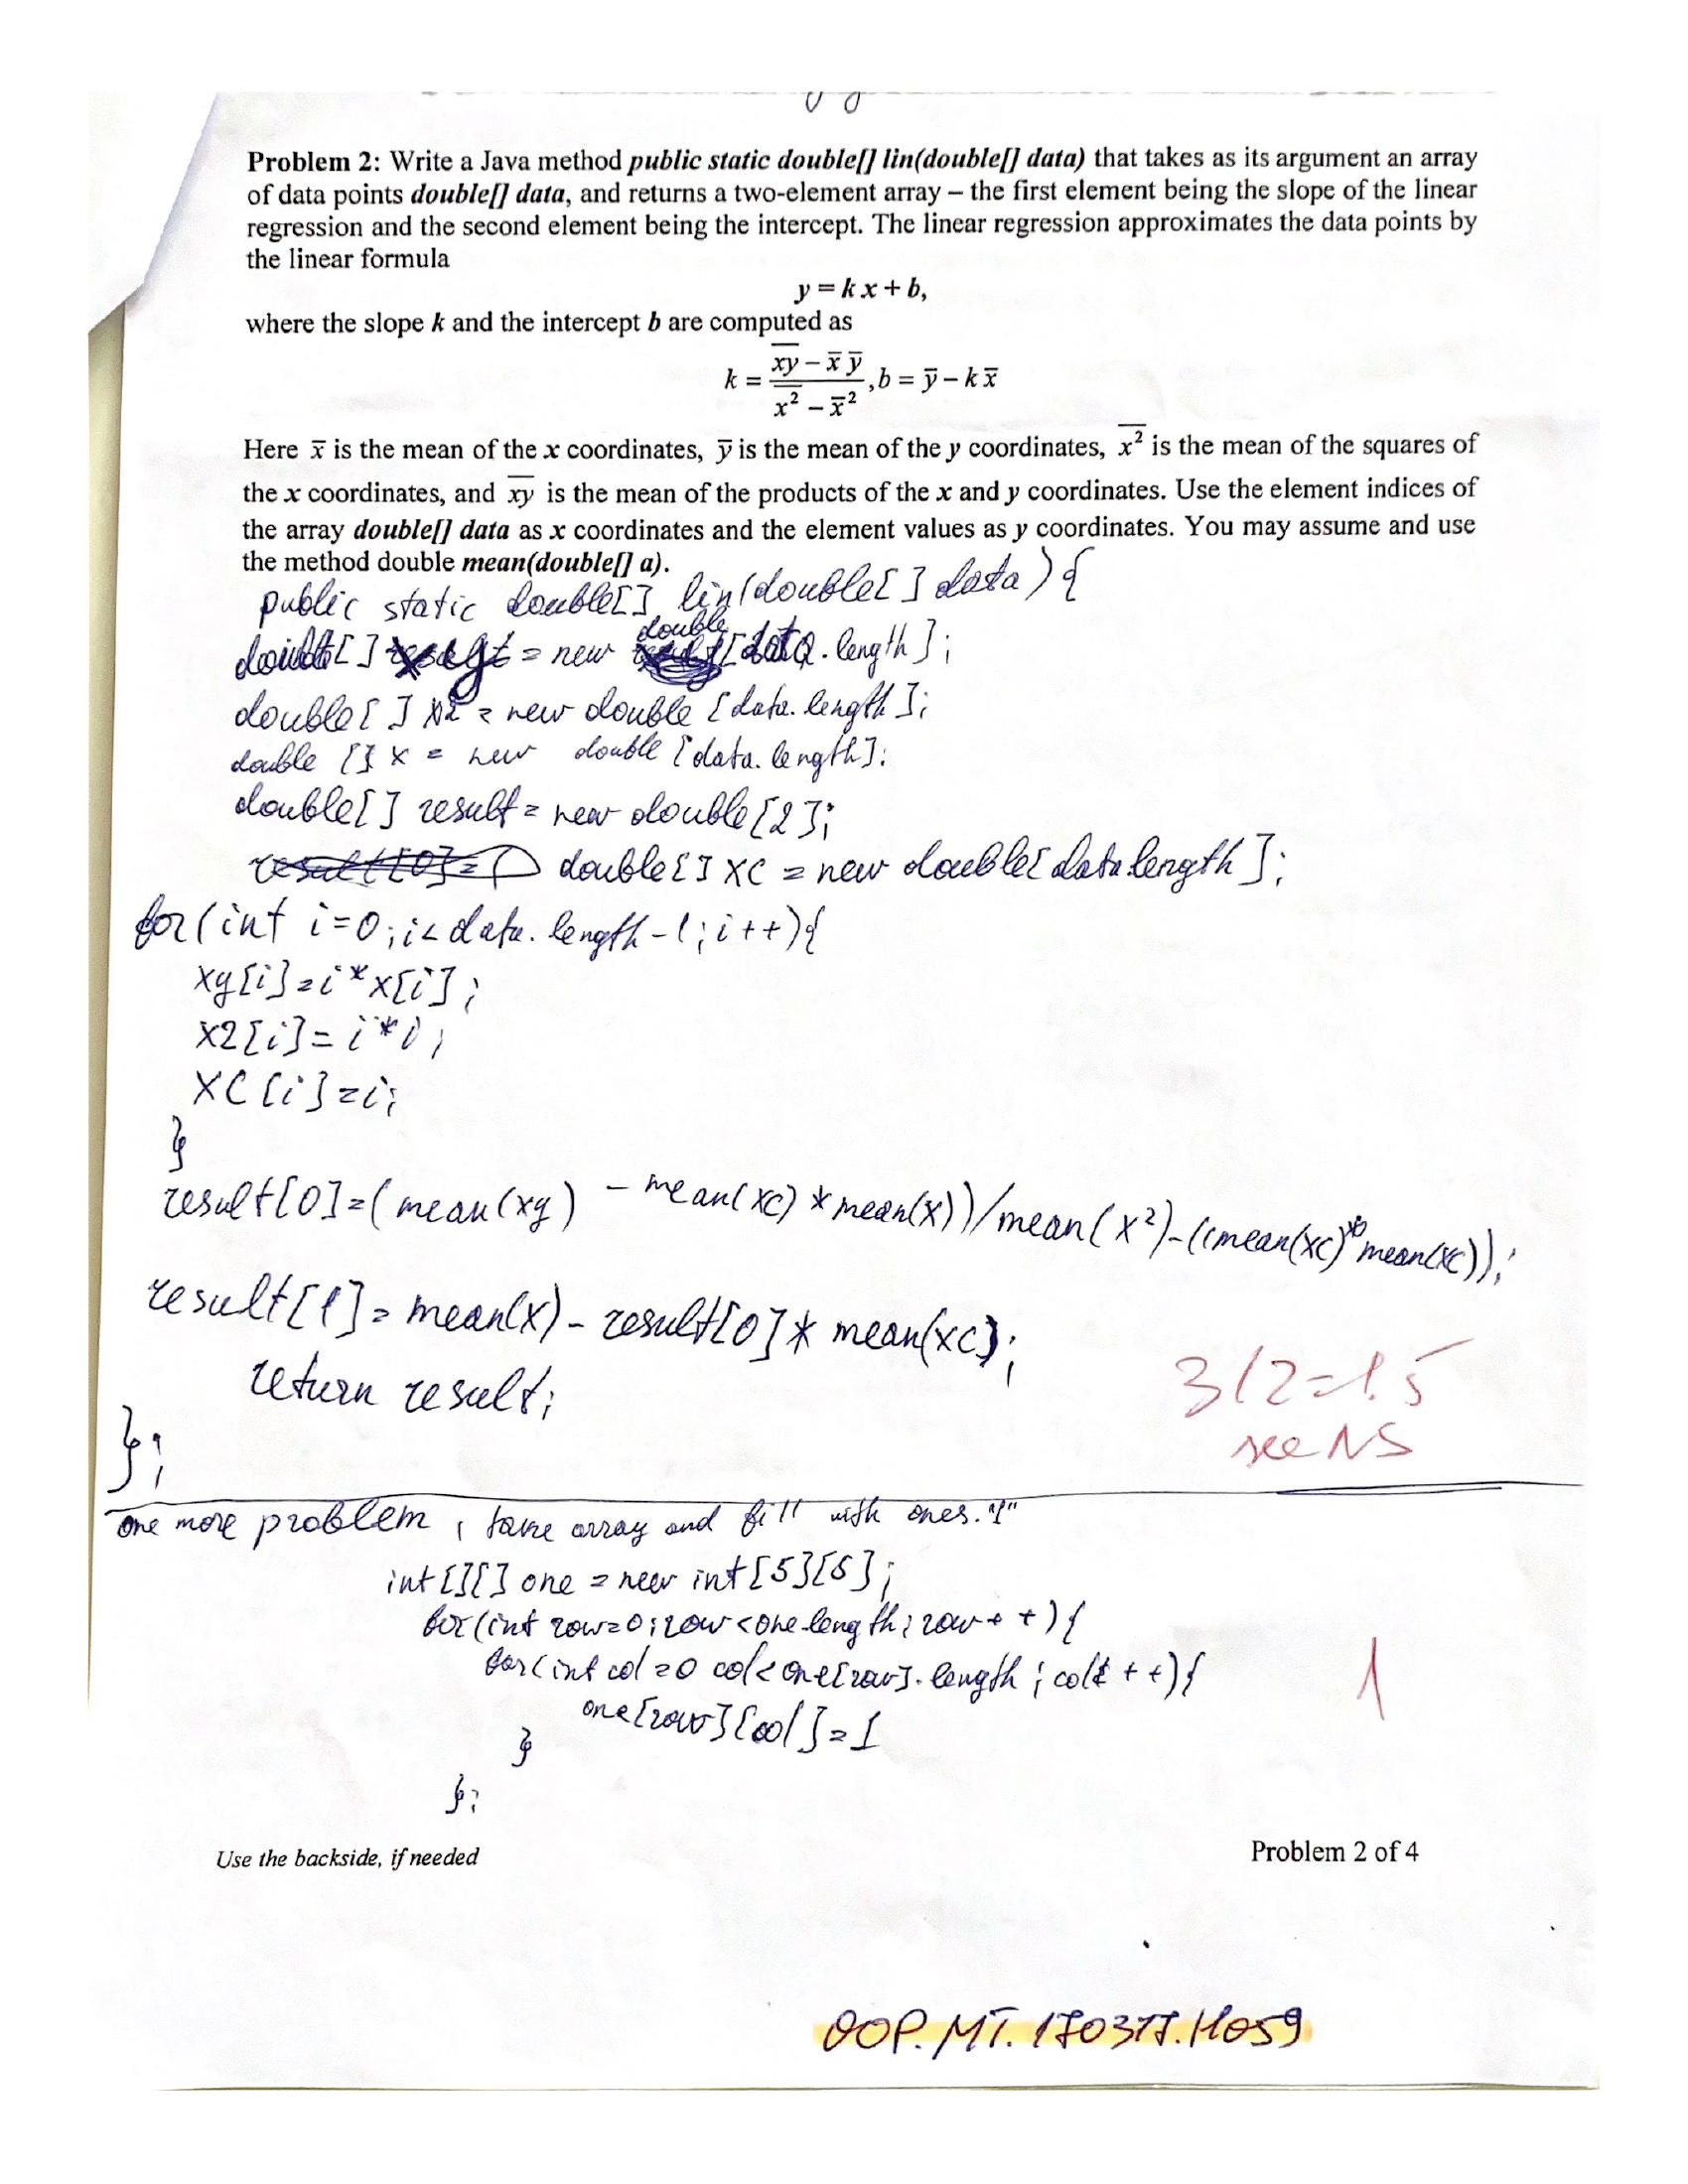 Problem 2: Write a Java method public static double[] lin(double[] data) that takes as its argument an array
of data points double[] data, and returns a two-element array – the first element being the slope of the linear
regression and the second element being the intercept. The linear regression approximates the data points by
the linear formula
y = k x + b,
where the slope k and the intercept b are computed as
k = (x̅y̅ – x̄ ȳ) / (x̅²̅ – x̄²), b = ȳ – k x̄
Here x̄ is the mean of the x coordinates, ȳ is the mean of the y coordinates, x̅²̅ is the mean of the squares of
the x coordinates, and x̅y̅ is the mean of the products of the x and y coordinates. Use the element indices of
the array double[] data as x coordinates and the element values as y coordinates. You may assume and use
the method double mean(double[] a).
public static double[] lin(double[] data){
double[] xy = new double[data.length];
double[] x2 = new double[data.length];
double[] x = new double[data.length];
double[] result = new double[2];
result[0]= double[] xc = new double[data.length];
for(int i=0;i<data.length-1;i++){
xy[i]=i*x[i];
x2[i]=i*i;
xc[i]=i;
}
result[0]=(mean(xy) - mean(xc)*mean(x))/mean(x2)-((mean(xc)*mean(xc));
result[1]=mean(x)-result[0]*mean(xc);
return result;
};
3/2=1.5
see N5
one more problem, take array and fill with ones. "1"
int[][] one = new int[5][5];
for(int row=0;row<one.length;row++){
for(int col=0 col<one[row].length;col++){
one[row][col]=1
}
};
1
Use the backside, if needed
Problem 2 of 4
OOP.MT.170317.H059